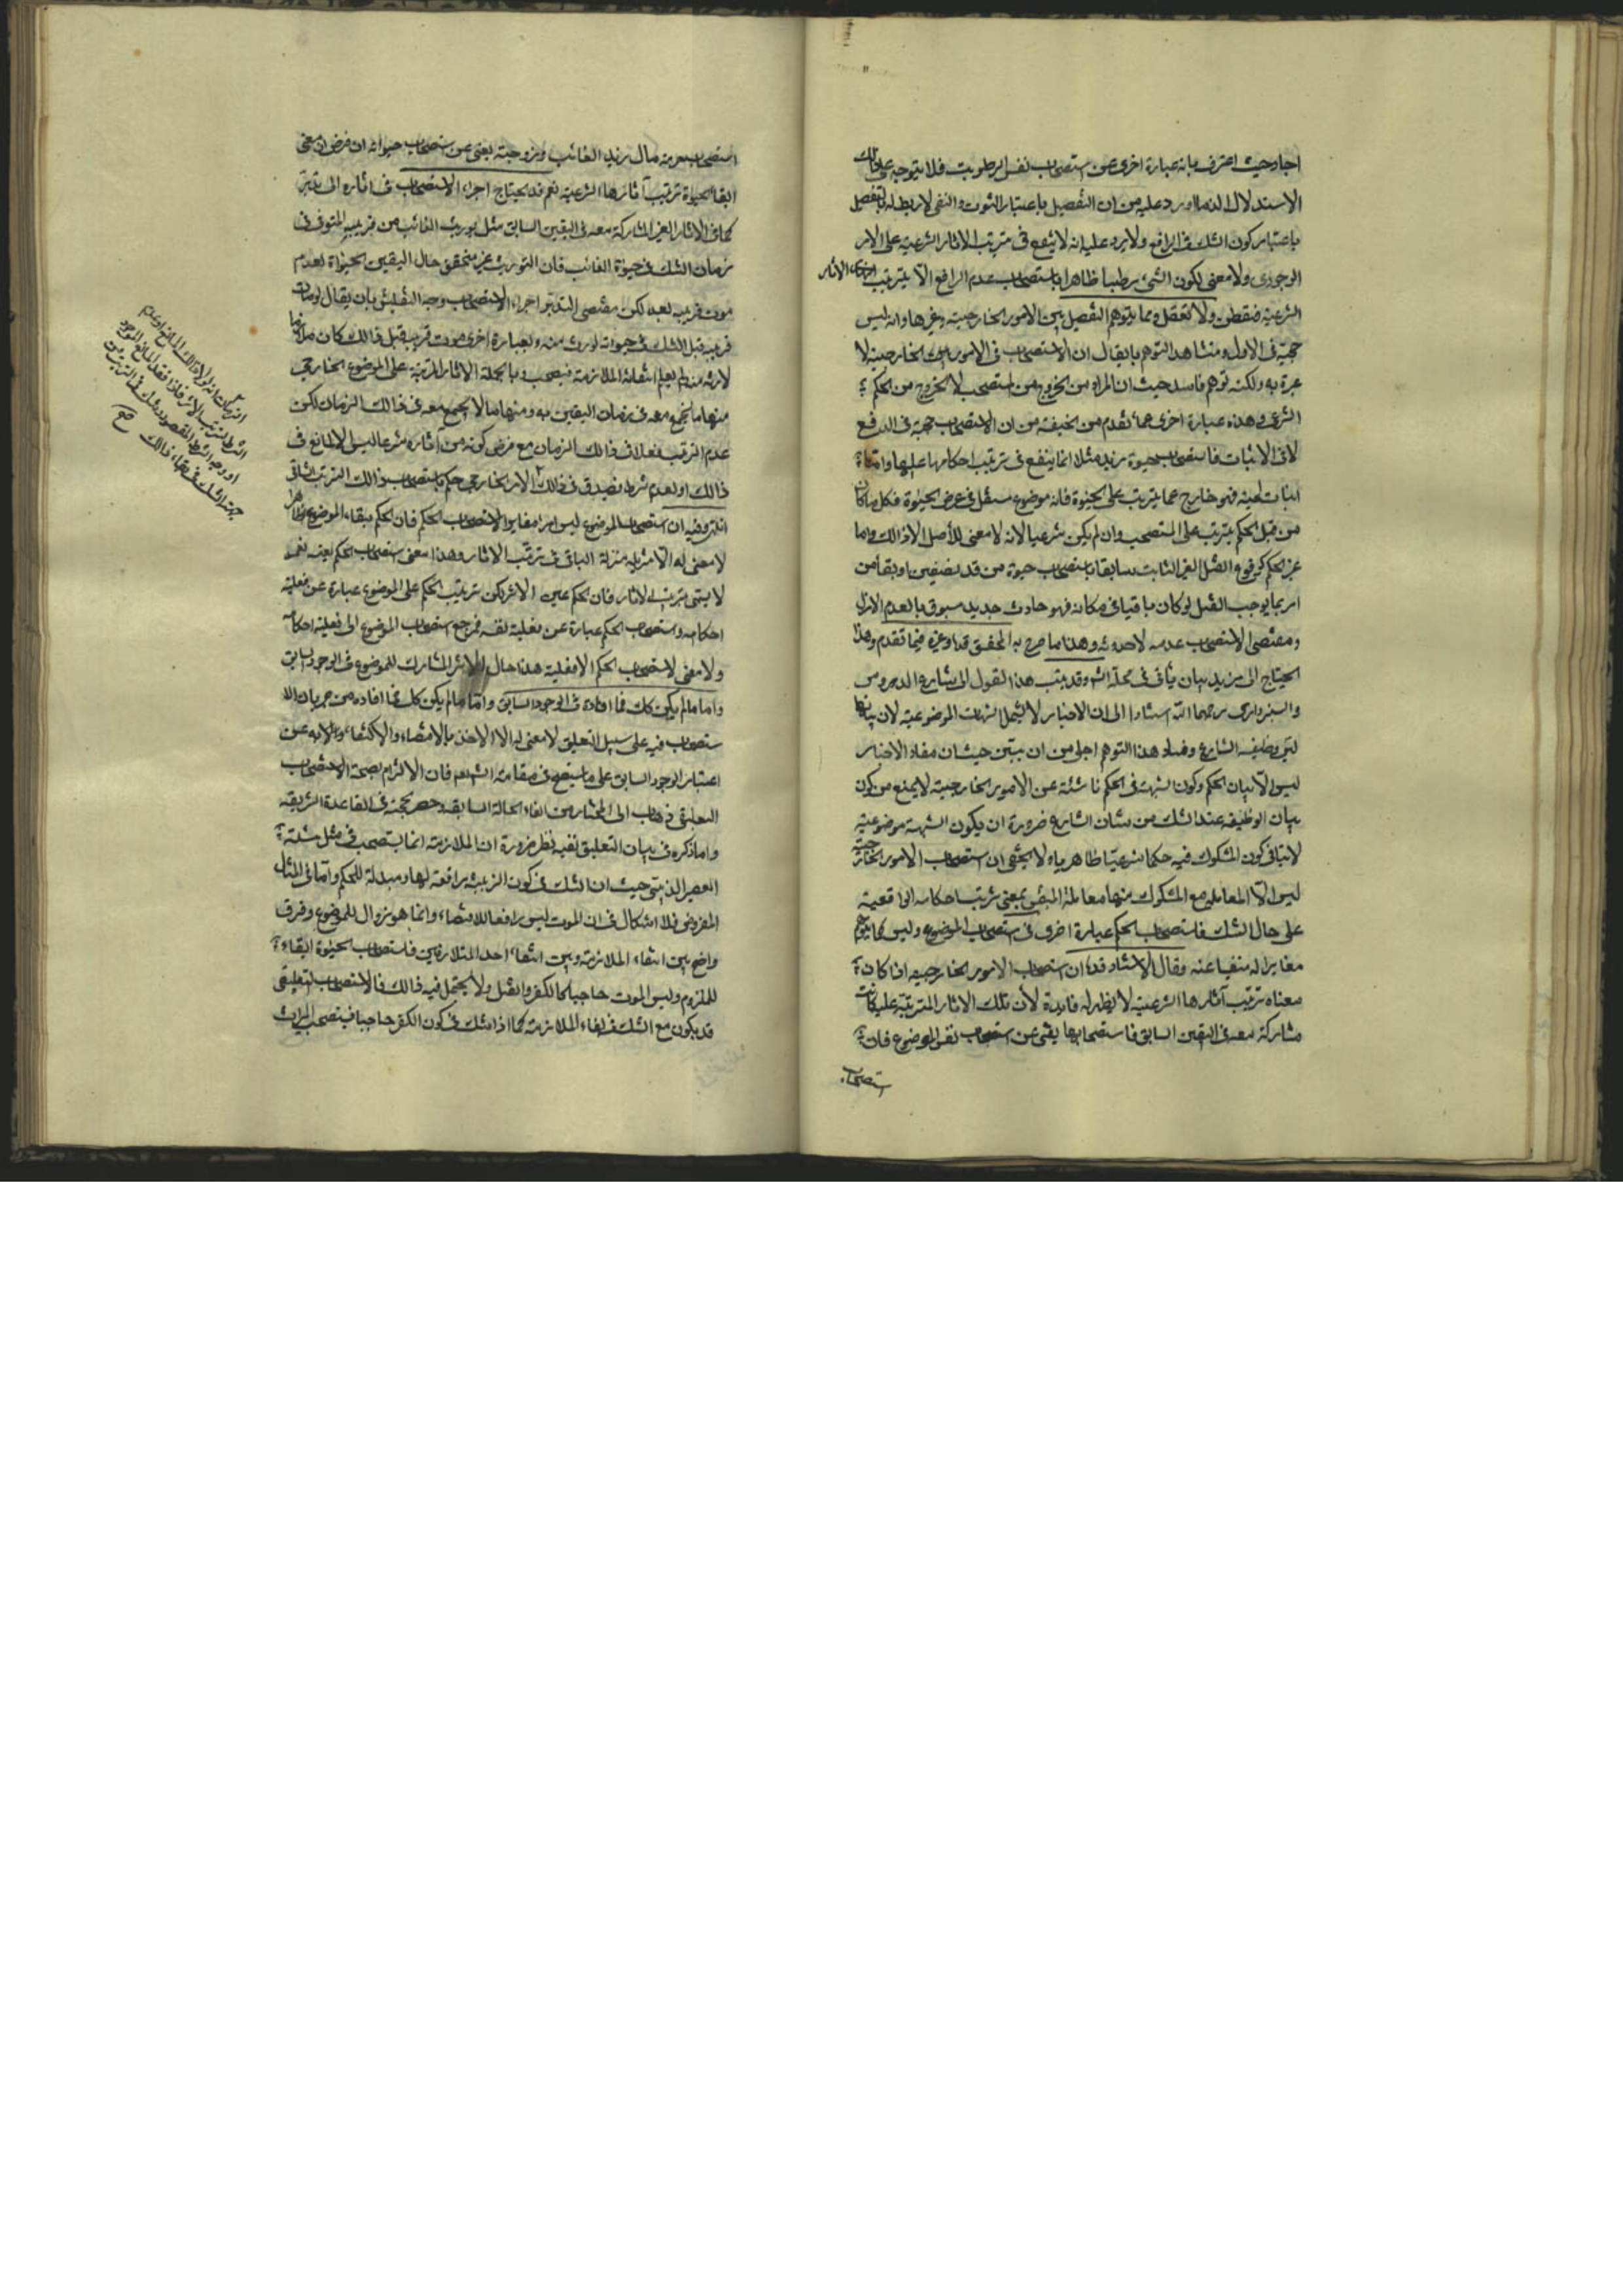 اجاد حيث اعترف بانه عبارة اخرى عن استصحاب نفس الرطوبت فلا يتوجه على ذلك
الاستدلال الذما اورد عليه من ان التفصيل باعتبار الثبوت والنفى لا ربط له بالتفصيل
باعتبار كون الشك فى الرافع ولا يرد عليه انه لا ينفع فى ترتيب الاثار الشرعية على الامر
الوجودى ولا معنى لكون الشئ رطبا ظاهرا باستصحاب عدم الرافع الا بترتيب الاثار
الشرعية فتفطن ولا تغفل ومما يتوهم التفصيل بين الامور الخارجية وغيرها وانه ليس
حجة فى الاول ومنشا هذا التوهم ما يقال ان الاستصحاب فى الامور الخارجية لا
عبرة به ولكنه توهم فاسد حيث ان المراد من الخروج من استصحب لا الخروج من الحكم
الشرعى وهذه عبارة اخرى عما تقدم من الحنفية من ان الاستصحاب حجة فى الدفع
لا فى الاثبات فاستصحاب حيوة زيد مثلا انما ينفع فى ترتيب احكامها عليها واما
اثبات لعينه فهو خارج عما يترتب على الحيوة فانه موضوع مستقل فى عرض الحيوة فكل ما كان
من قبل الحكم يترتب على المستصحب وان لم يكن شرعيا لانه لا معنى للأصل الا ذالك واما
غير الحكم كوقوع القتل الغير الثابت سابقا باستصحاب حيوة من قد بنصفين او بقأ من
امر بما يوجب القتل لو كان باقيا فى مكانه فهو حادث جديد مسبوق بالعدم الازلى
ومقتضى الاستصحاب عدمه لا حدوثه وهذا ما صرح به المحقق قده وغيره فيما تقدم وهذا
الحيتاج الى مزيد بيان يأتى فى محله انشه وقد ينسب هذا القول الى شارح الدروس
والسبزوارى رحمهما الله استنادا الى ان الاخبار لا يشمل الشبهات الموضوعية لان بيانها
ليس وظيفه الشارع وفساد هذا التوهم اجلى من ان يبين حيث ان مفاد الاخبار
ليس الا بيان الحكم وكون الشبهة فى الحكم ناشئة عن الامور الخارجية لا يمنع من كون
بيان الوظيفه عند الشك من شان الشارع ضرورة ان يكون الشبهة موضوعية
لا ينافى كون المشكوك فيه حكما شرعيا ظاهريا ولا يخفى ان استصحاب الامور الخارجية
ليس الا المعاملة مع المشكوك منها معاملة المتيقن بمعنى ترتيب احكامه الواقعية
على حال الشك فاستصحاب الحكم عبارة اخرى فى استصحاب الموضوع وليس كما يتوهم
مغايرا له منفيا عنه وقال الاستاد قده ان استصحاب الامور الخارجيه اذا كان
معناه ترتيب آثارها الشرعية لا يظهر له فايدة لأن تلك الاثار المترتبة عليه كانت
مشاركة معه فى اليقين السابق فاستصحابها يغنى عن استصحاب نفس الموضوع فان
استصحاب
استصحاب حرمة مال زيد الغائب وزوجيته يغنى عن استصحاب حيوته ان فرض ان معنى
ابقاء الحيوة ترتيب آثارها الشرعية نعم قد يحتاج اجراء الاستصحاب فى اثاره الى تدبر
كما فى الاثار الغير المشاركة معه فى اليقين السابق مثل توريث الغائب من قريبه المتوفى فى
زمان الشك فى حيوة الغائب فان التوريث غير متحقق حال اليقين الحيوة لعدم
موت قريبه بعد لكن مقتضى التدبر اجراء الاستصحاب وجه التعليق بان يقال لو مات
قريبه قبل الشك فى حيوته لورث منه وبعبارة اخرى موت قريبه قبل ذالك كان ملازما
لارثه منه ولم يعلم انتفاء الملازمة فيستصحب وبالجملة الاثار المترتبة على الموضوع الخارجى
منها ما يجمع معه فى زمان اليقين به ومنها ما لا يجمع معه فى ذالك الزمان لكن
عدم الترتب فعلا فى ذالك الزمان مع فرض كونه من آثاره شرعا ليس الا لمانع فى
ذالك او لعدم شرط فيصدق فى ذالك الامر الخارجى حكم باستصحاب ذالك الترتب الشانى
انتهى وفيه ان استصحاب الموضوع ليس امرا مغايرا لاستصحاب الحكم فان الحكم ببقاء الموضوع ظاهرا
لا معنى له الا تنزيله منزلة الباقى فى ترتب الاثار وهذا معنى استصحاب الحكم بعينه نعم
لا يبقى ترتيب الاثار فان الحكم عين الاثر لكن ترتيب الحكم على الموضوع عبارة عن فعلية
احكامه واستصحاب الحكم عبارة عن فعلية نفسه فمرجع استصحاب الموضوع الى فعلية احكامه
ولا معنى لاستصحاب الحكم الا فعليته هذا حال الاثر المشارك للموضوع فى الوجود السابق
واما ما لم يكن كك فما افاده فى الوجود السابق واما ما لم يكن كك فما افاده من جريان الا
ستصحاب فيه على سبيل التعليق لا معنى له الا الاخذ بالامضاء والاكتفاء عن
اعتبار الوجود السابق على ما سيتضح فى مقامه انشه تعم فان الالتزام بصحة الاستصحاب
التعليقى ذهاب الى المختار من الغاء الحالة السابقه وحصر الحجة فى القاعدة الشريفة
واما ذكره فى بيان التعليق ففيه نظر ضرورة ان الملازمة انما يستصحب فى مثل مسئلة
العصير الزبيبى حيث ان الشك فى كون الزبيبية رافعة لها ومبدلة للحكم واما فى المثال
المفروض فلا اشكال فى ان الموت ليس رافعا للاقتضاء وانما هو زوال للموضوع وفرق
واضح بين انتفاء الملازمة وبين انتفاء احد المتلازمين فاستصحاب الحيوة ابقاء
للملزوم وليس الموت حاجبا كالكفر والقتل ولا يحتمل فيه ذالك فالاستصحاب التعليقى
قد يكون مع الشك فى بقاء الملازمة كما اذا شك فى كون الكفر حاجبا فيستصحب الميراث
الزمان انه لولا ذالك المانع او عدم
الشرط لترتب الاثار فاذا فقد المانع الموجود
او وجد الشرط المفقود وشك فى الترتب من
جهة الشك فى بقاء ذالك صح